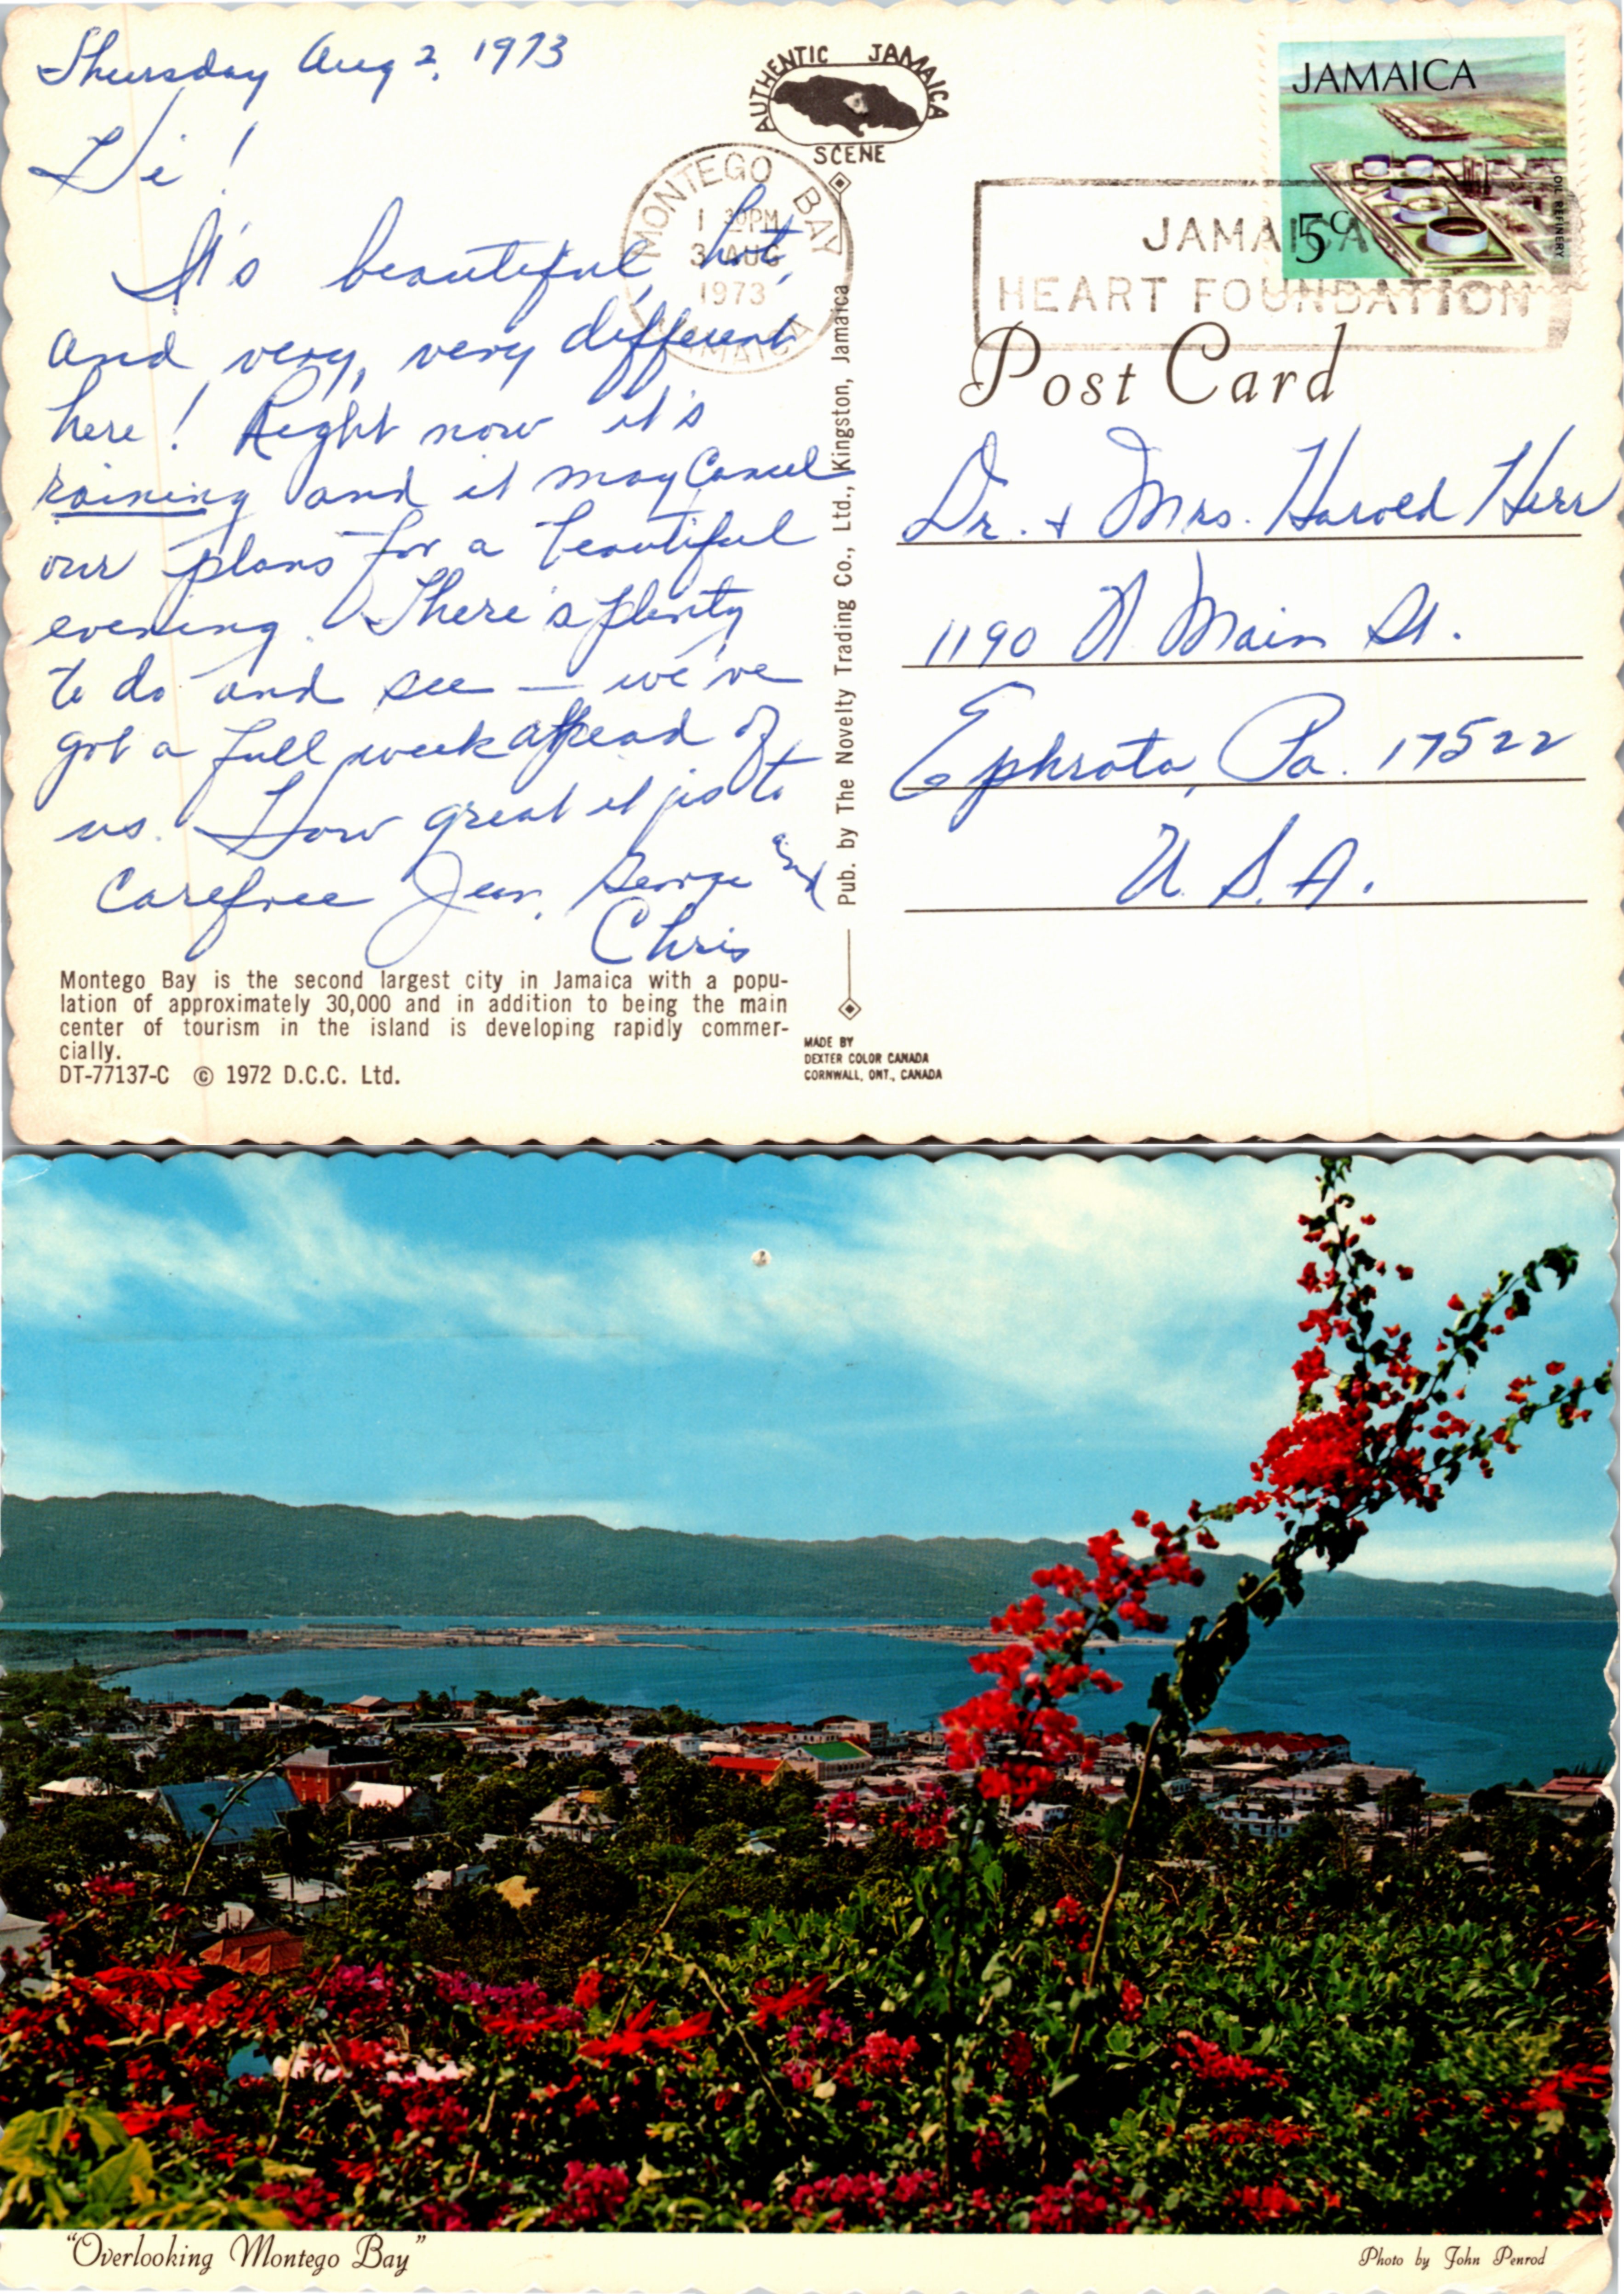 Thursday Aug 2, 1973
Hi!
It's beautiful, hot,
and very, very different
here! Right now it's
raining and it may cancel
our plans for a beautiful
evening. There's plenty
to do and see — we've
got a full week ahead of
us. How great it is to
carefree Jean, George and
Chris
Montego Bay is the second largest city in Jamaica with a popu-
lation of approximately 30,000 and in addition to being the main
center of tourism in the island is developing rapidly commer-
cially.
DT-77137-C © 1972 D.C.C. Ltd.
AUTHENTIC JAMAICA
SCENE
MONTEGO BAY
1 30PM
3 AUG
1973
JAMAICA
Pub. by The Novelty Trading Co., Ltd., Kingston, Jamaica
MADE BY
DEXTER COLOR CANADA
CORNWALL, ONT., CANADA
JAMAICA
5c
OIL REFINERY
JAMAICA
HEART FOUNDATION
Post Card
Dr. + Mrs. Harold Herr
1190 W Main St.
Ephrata, Pa. 17522
U.S.A.
"Overlooking Montego Bay"
Photo by John Penrod